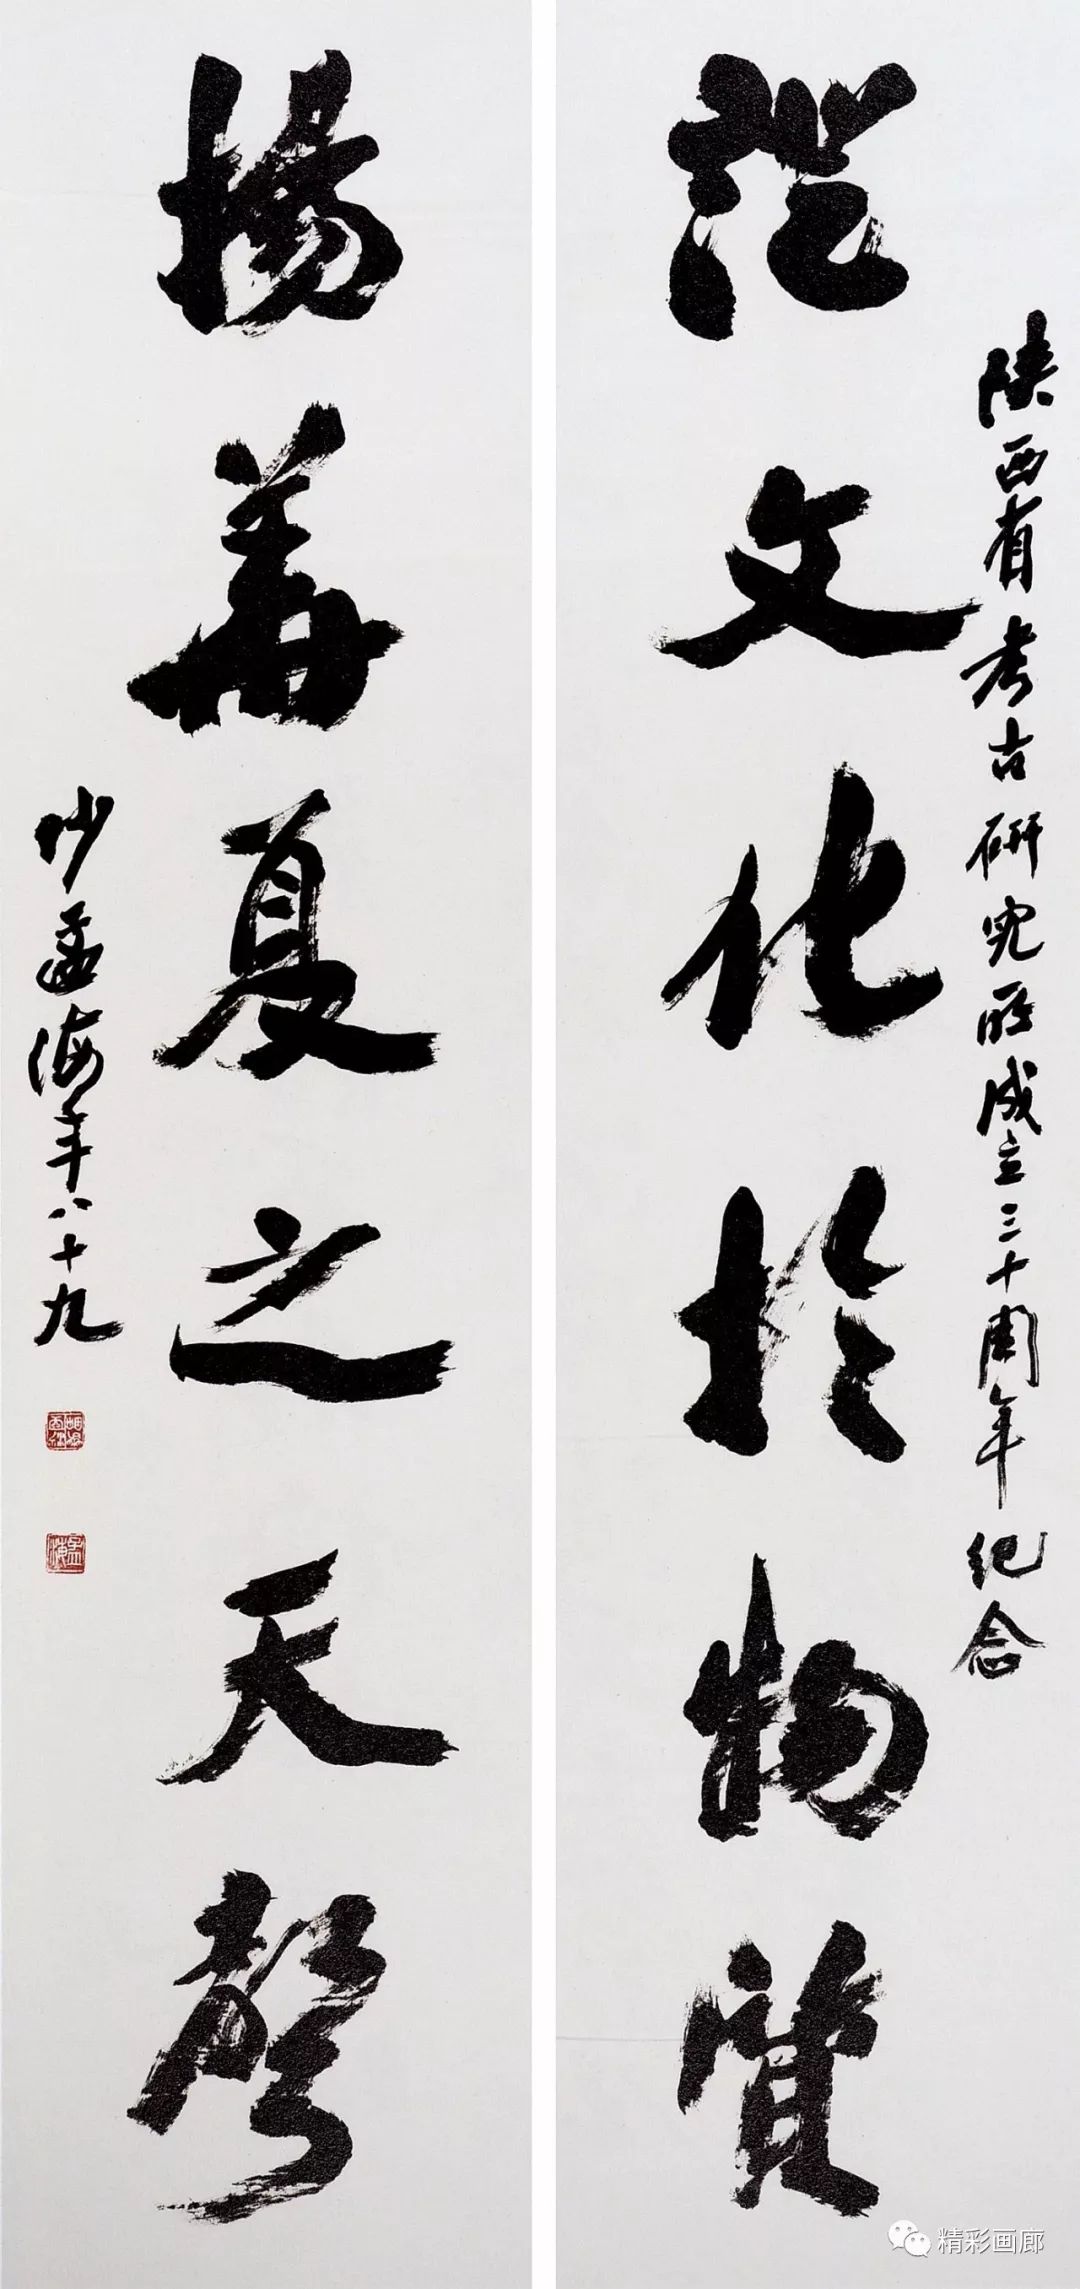 陝西省考古研究所成立三十周年紀念
證文化於物質
揚華夏之天聲
沙孟海年八十九
孟海
精彩画廊